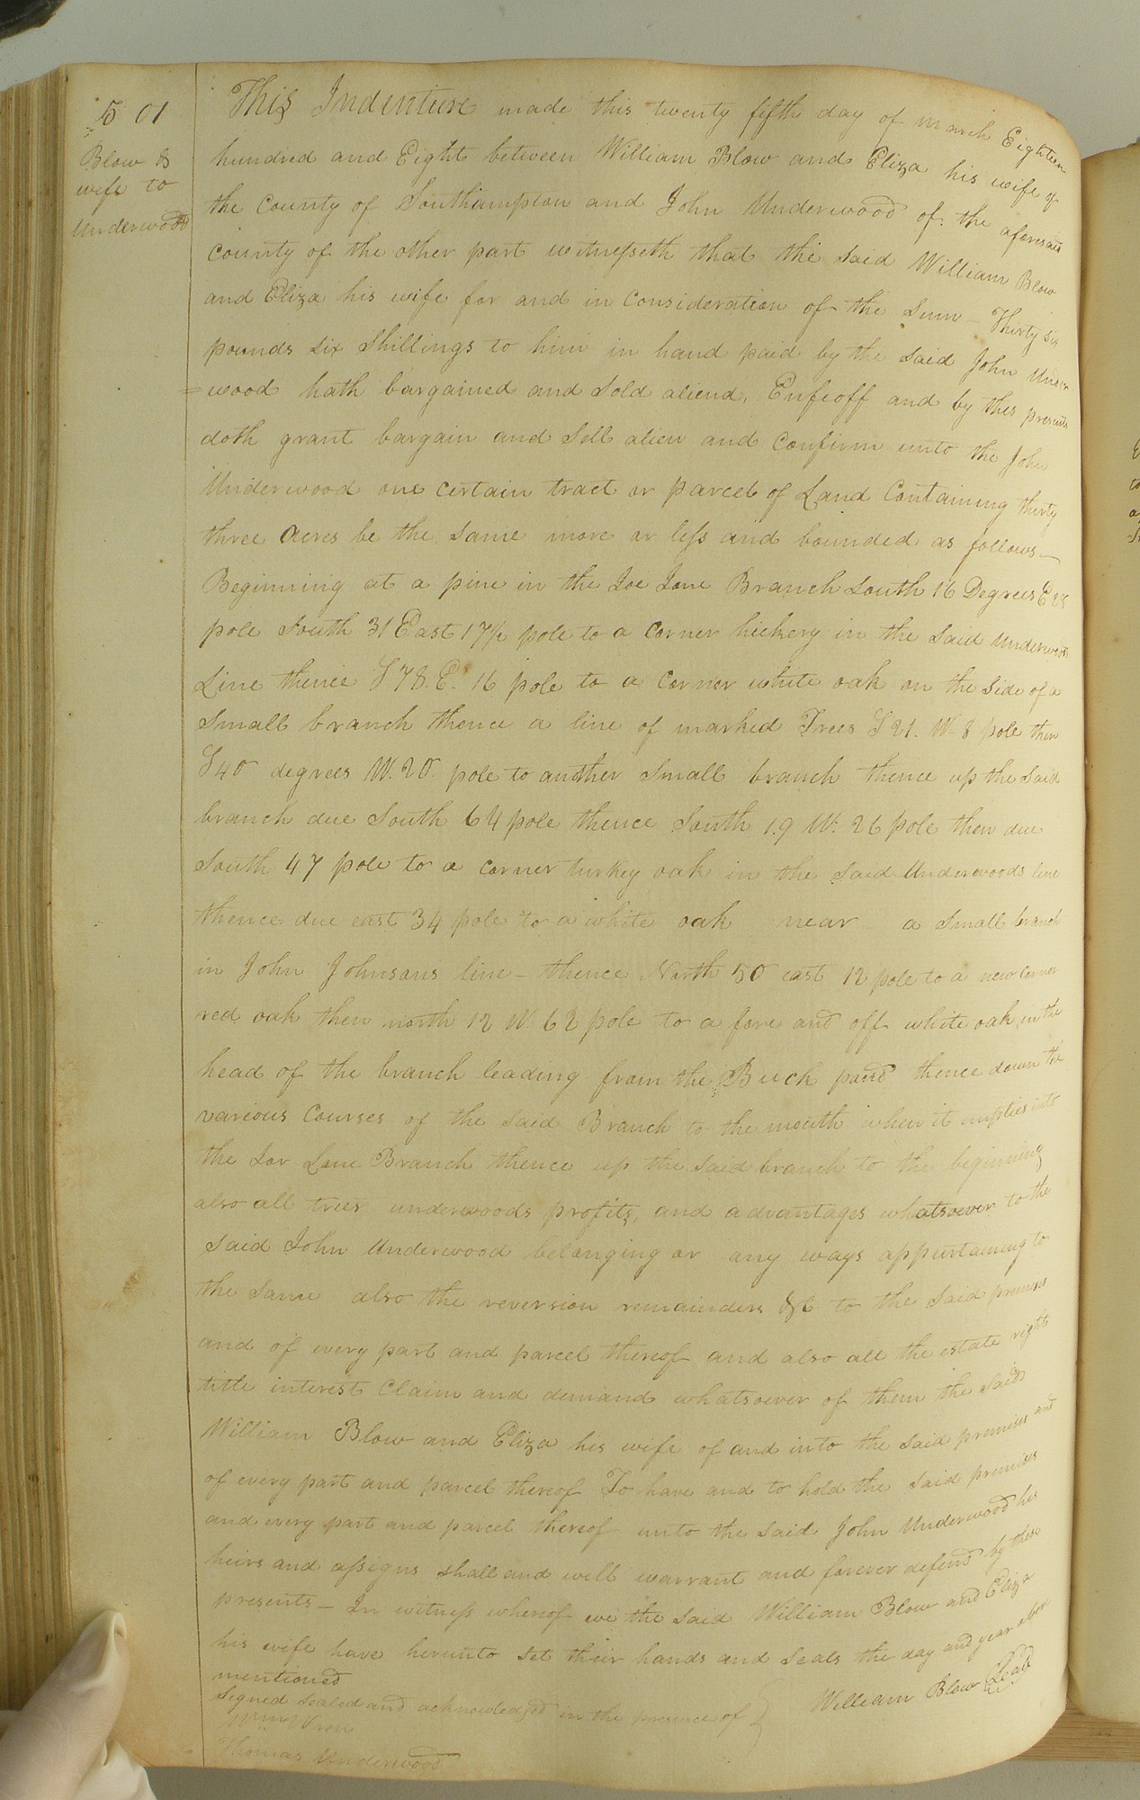 501
Blow &
wife to
Underwood
This Indenture made this twenty fifth day of march Eighteen
hundred and Eight between William Blow and Eliza his wife of
the County of Southampton and John Underwood of the aforesaid
County of the other part witnesseth that the said William Blow
and Eliza his wife for and in Consideration of the Sum - Thirty Six
pounds six Shillings to him in hand paid by the said John Under
=wood hath bargained and Sold aliend, Enfeoff and by thes presents
doth grant bargain and Sell alien and Confirm unto the John
Underwood one certain tract or parcel of Land Containing thirty
three Acres be the same more or less and bounded as follows—
Beginning at a pine in the Joe Lane Branch South 16 Degrees E
pole South 31 East 17½ pole to a Corner hickery in the said Underwoods
Line thence S 78. E. 16 pole to a Corner white oak on the side of a
Small branch thence a line of marked Trees S 21. W. 8 pole then
S 40 degrees W. 20 pole to another Small branch thence up the said
branch due South 64 pole thence South 19 W. 26 pole then due
South 47 pole to a corner turkey oak in the said Underwoods line
thence due east 34 pole to a white oak near a Small branch
in John Johnsons line - thence North 50 east 12 pole to a new Corner
red oak then north 12 W. 62 pole to a fore and off white oak in the
head of the branch leading from the Buck pond thence down the
various Courses of the said Branch to the mouth when it empties into
the Lane Branch thence up the said branch to the begining
also all trees underwoods profits, and advantages whatsoever to the
said John Underwood belonging or any ways appurtaining to
the same also the reversion remainders &c to the said premises
and of every part and parcel thereof and also all the estate right
title interest Claim and demand whatsoever of them the said
William Blow and Eliza his wife of and into the said premises and
of every part and parcel thereof To have and to hold the said premises
and every part and parcel thereof unto the said John Underwood his
heirs and assigns shall and will warrant and forever defend by these
presents - In witness whereof we the said William Blow and Eliza
his wife have herunto set their hands and seals the day and year above
mentioned
Signed Sealed and acknowledged in the presence of } William Blow Seal
Wm Wren
Thomas Underwood